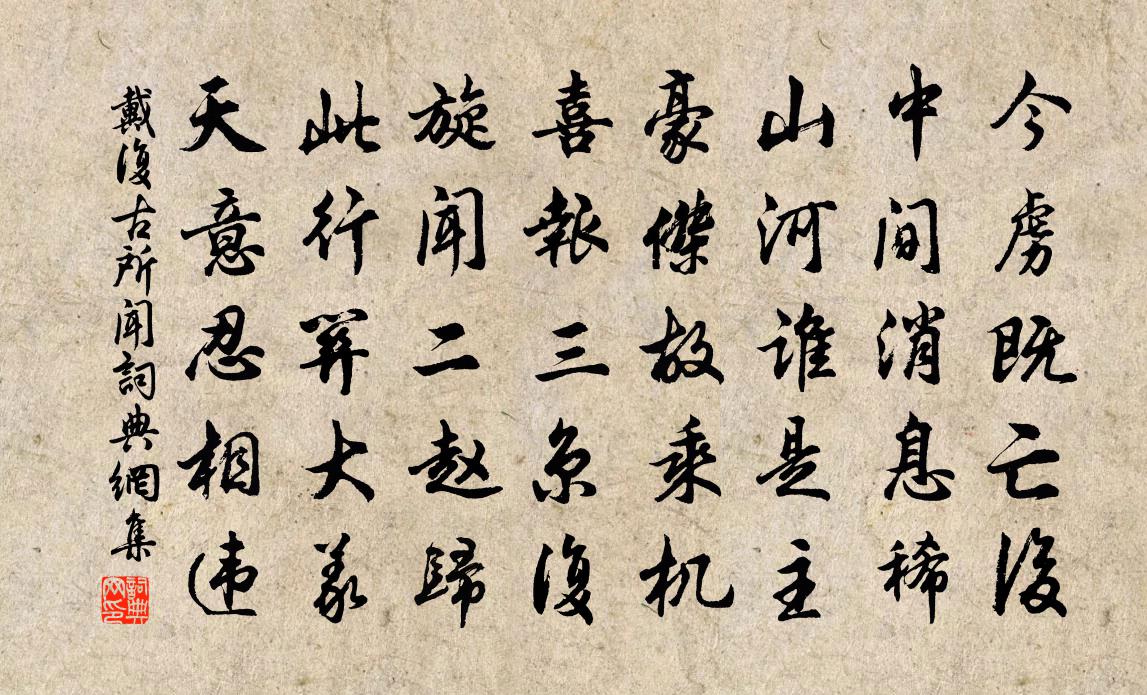 今虏既亡後
中间消息稀
山河谁是主
豪傑故乘机
喜報三京復
旋闻二赵歸
此行關大義
天意忍相违
戴復古所闻詞典網集
詞典网印